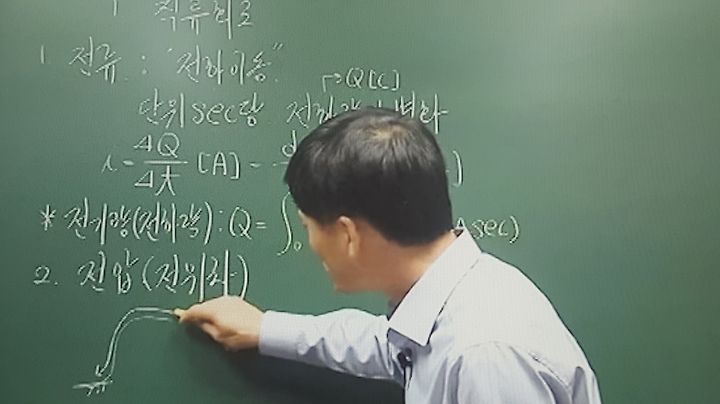 직류회로
1. 전류 : "전하이동"
→ Q[C]
단위 sec당 전하량 변화
i = ΔQ/Δt [A] = d
* 전기량(전하량) : Q = ∫₀ Asec)
2. 전압(전위차)